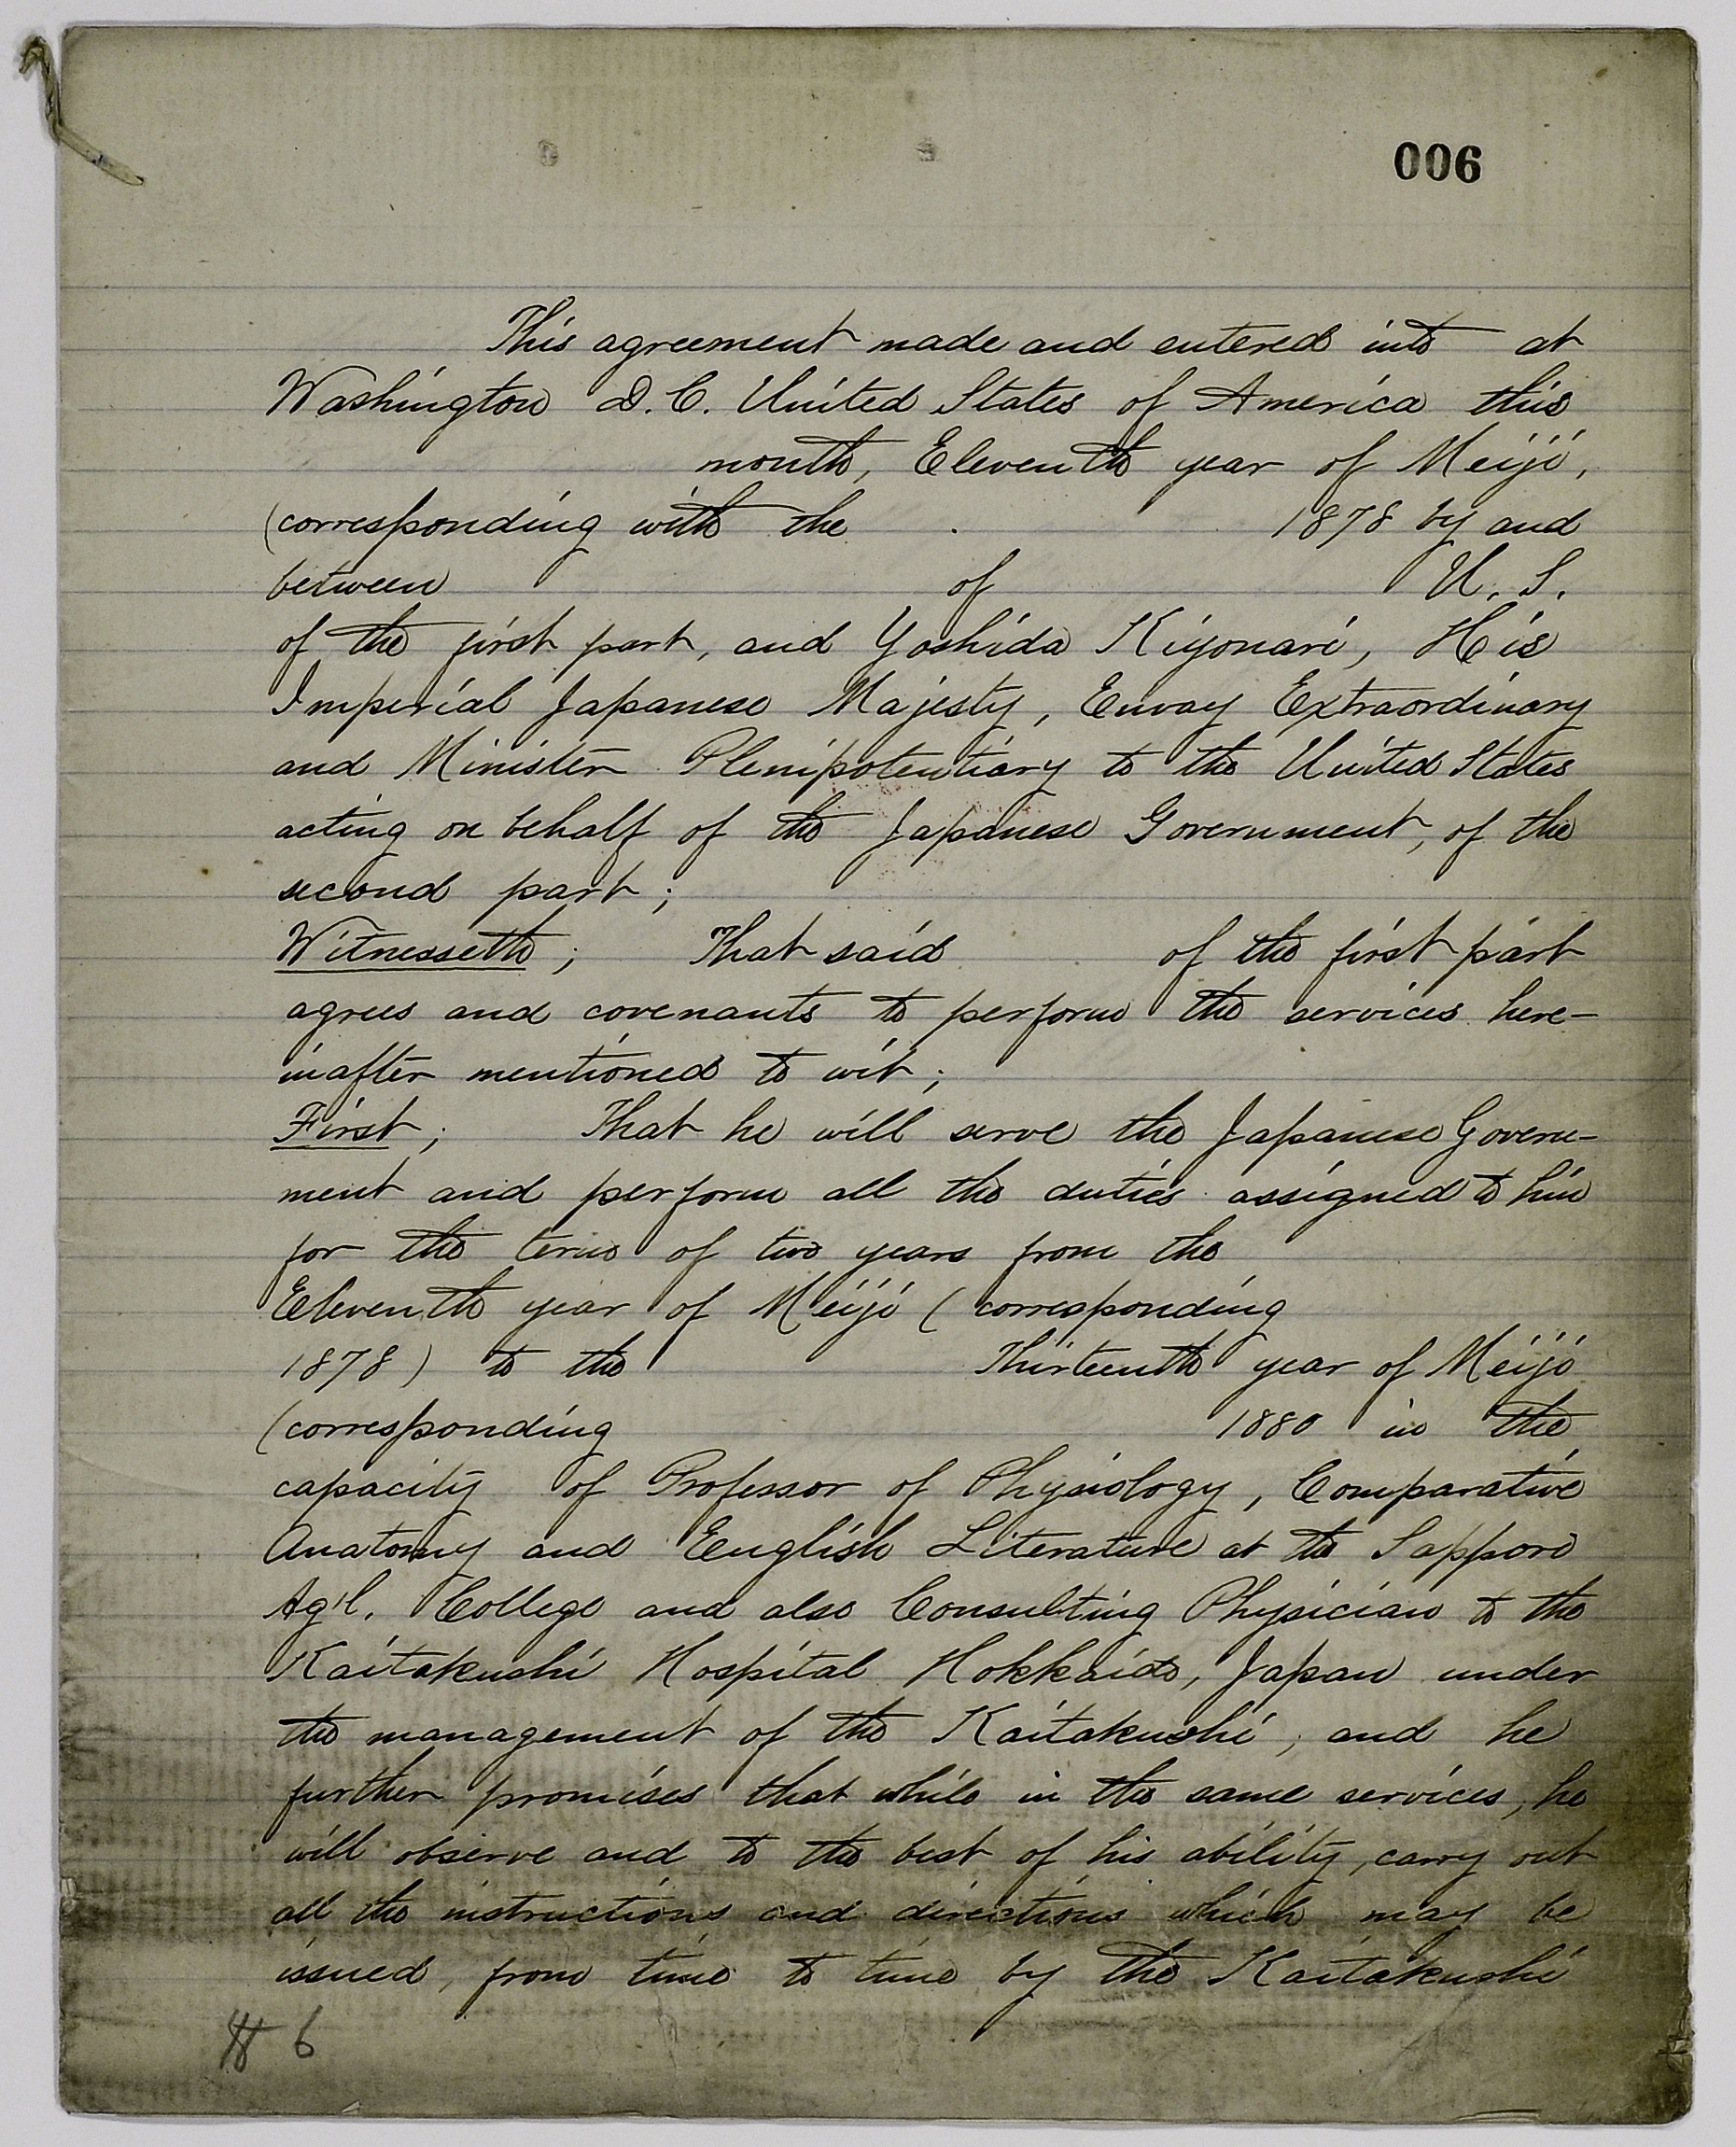 006
This agreement made and entered into at
Washington D.C. United States of America this
month, Eleventh year of Meiji,
(corresponding with the . 1878 by and
between of U. S.
of the first part, and Yoshida Kiyonari, His
Imperial Japanese Majesty, Envoy Extraordinary
and Minister Plenipotentiary to the United States
acting on behalf of the Japanese Government, of the
second part;
Witnesseth; That said of the first part
agrees and covenants to perform the services here-
inafter mentioned to wit;
First; That he will serve the Japanese Govern-
ment and perform all the duties assigned to him
for the term of two years from the
Eleventh year of Meiji (corresponding
1878) to the Thirteenth year of Meiji
(corresponding 1880 in the
capacity of Professor of Physiology, Comparative
Anatomy and English Literature at the Sapporo
Ag'l. College and also Consulting Physician to the
Kaitakushi Hospital Hokkaido, Japan under
the management of the Kaitakushi, and he
further promises that while in the same services, he
will observe and to the best of his ability, carry out
all the instructions and directions which may be
issued, from time to time by the Kaitakushi
# 6